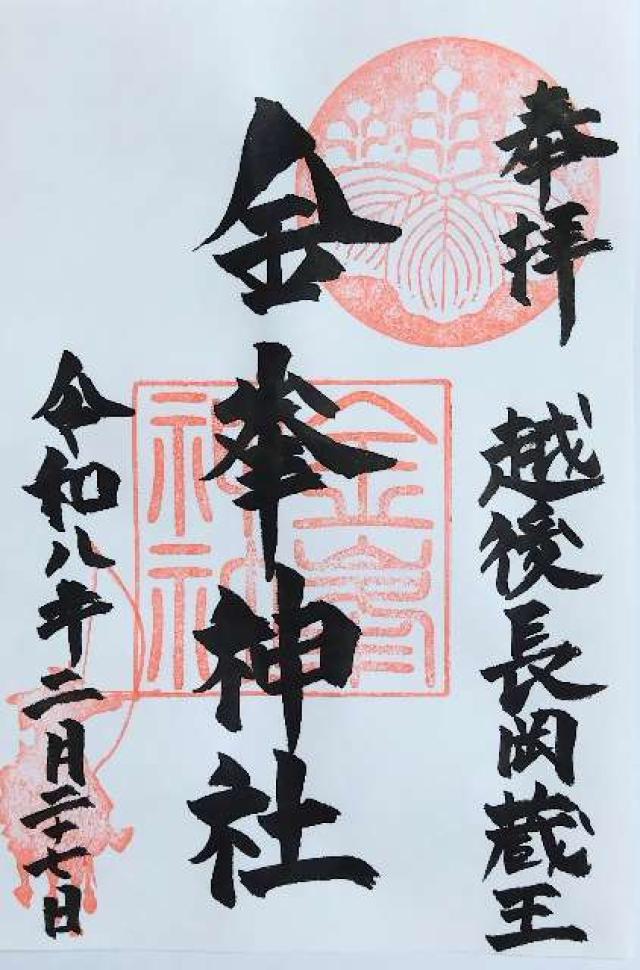 奉拝
越後長岡蔵王
金峯神社
金峯神社
令和八年二月二十七日